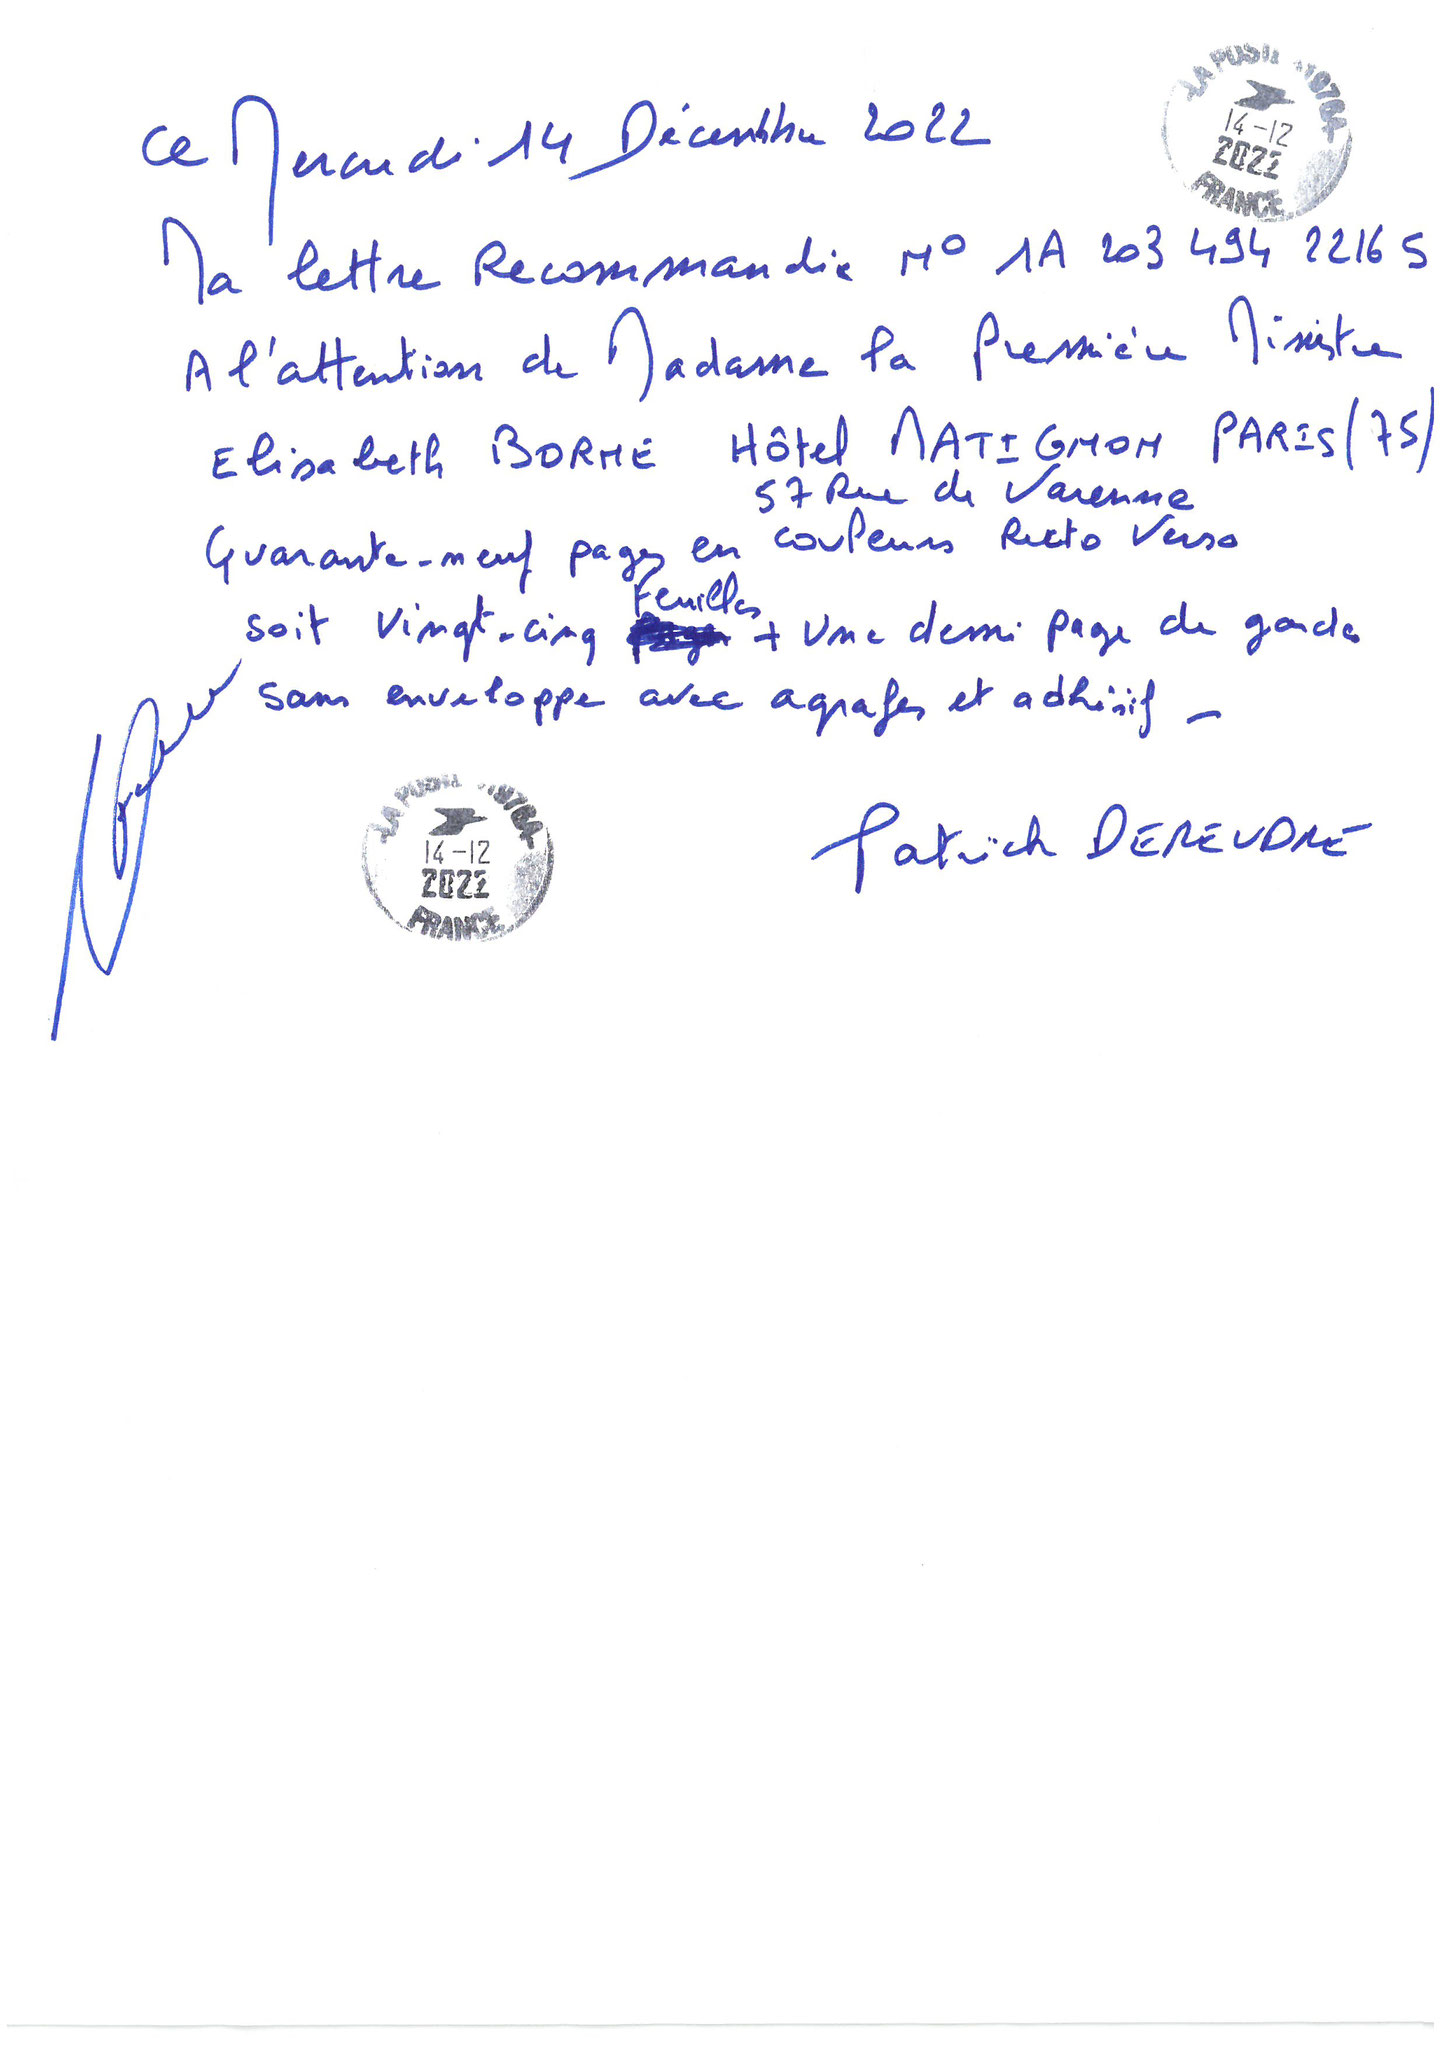 Ce Mercredi 14 Décembre 2022
Ma lettre Recommandée N° 1A 203 494 2216 5
A l'attention de Madame la Première Ministre
Elisabeth BORNE Hôtel MATIGNON PARIS (75)
57 Rue de Varenne
Quarante-neuf pages en couleurs Recto Verso
soit vingt-cinq Feuilles + une demi page de garde
sans enveloppe avec agrafes et adhésif_
Patrick DEREUDRE
14-12
2022
FRANCE
14-12
2022
FRANCE